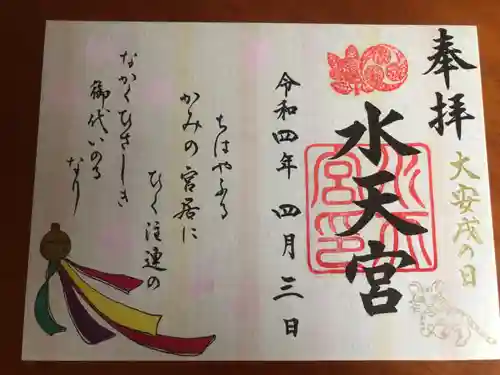 奉拝
大安戌の日
水天宮
令和四年 四月 三日
ちはやふる
かみの宮居に
ひく注連の
なかくひさしき
御代いのる
なり